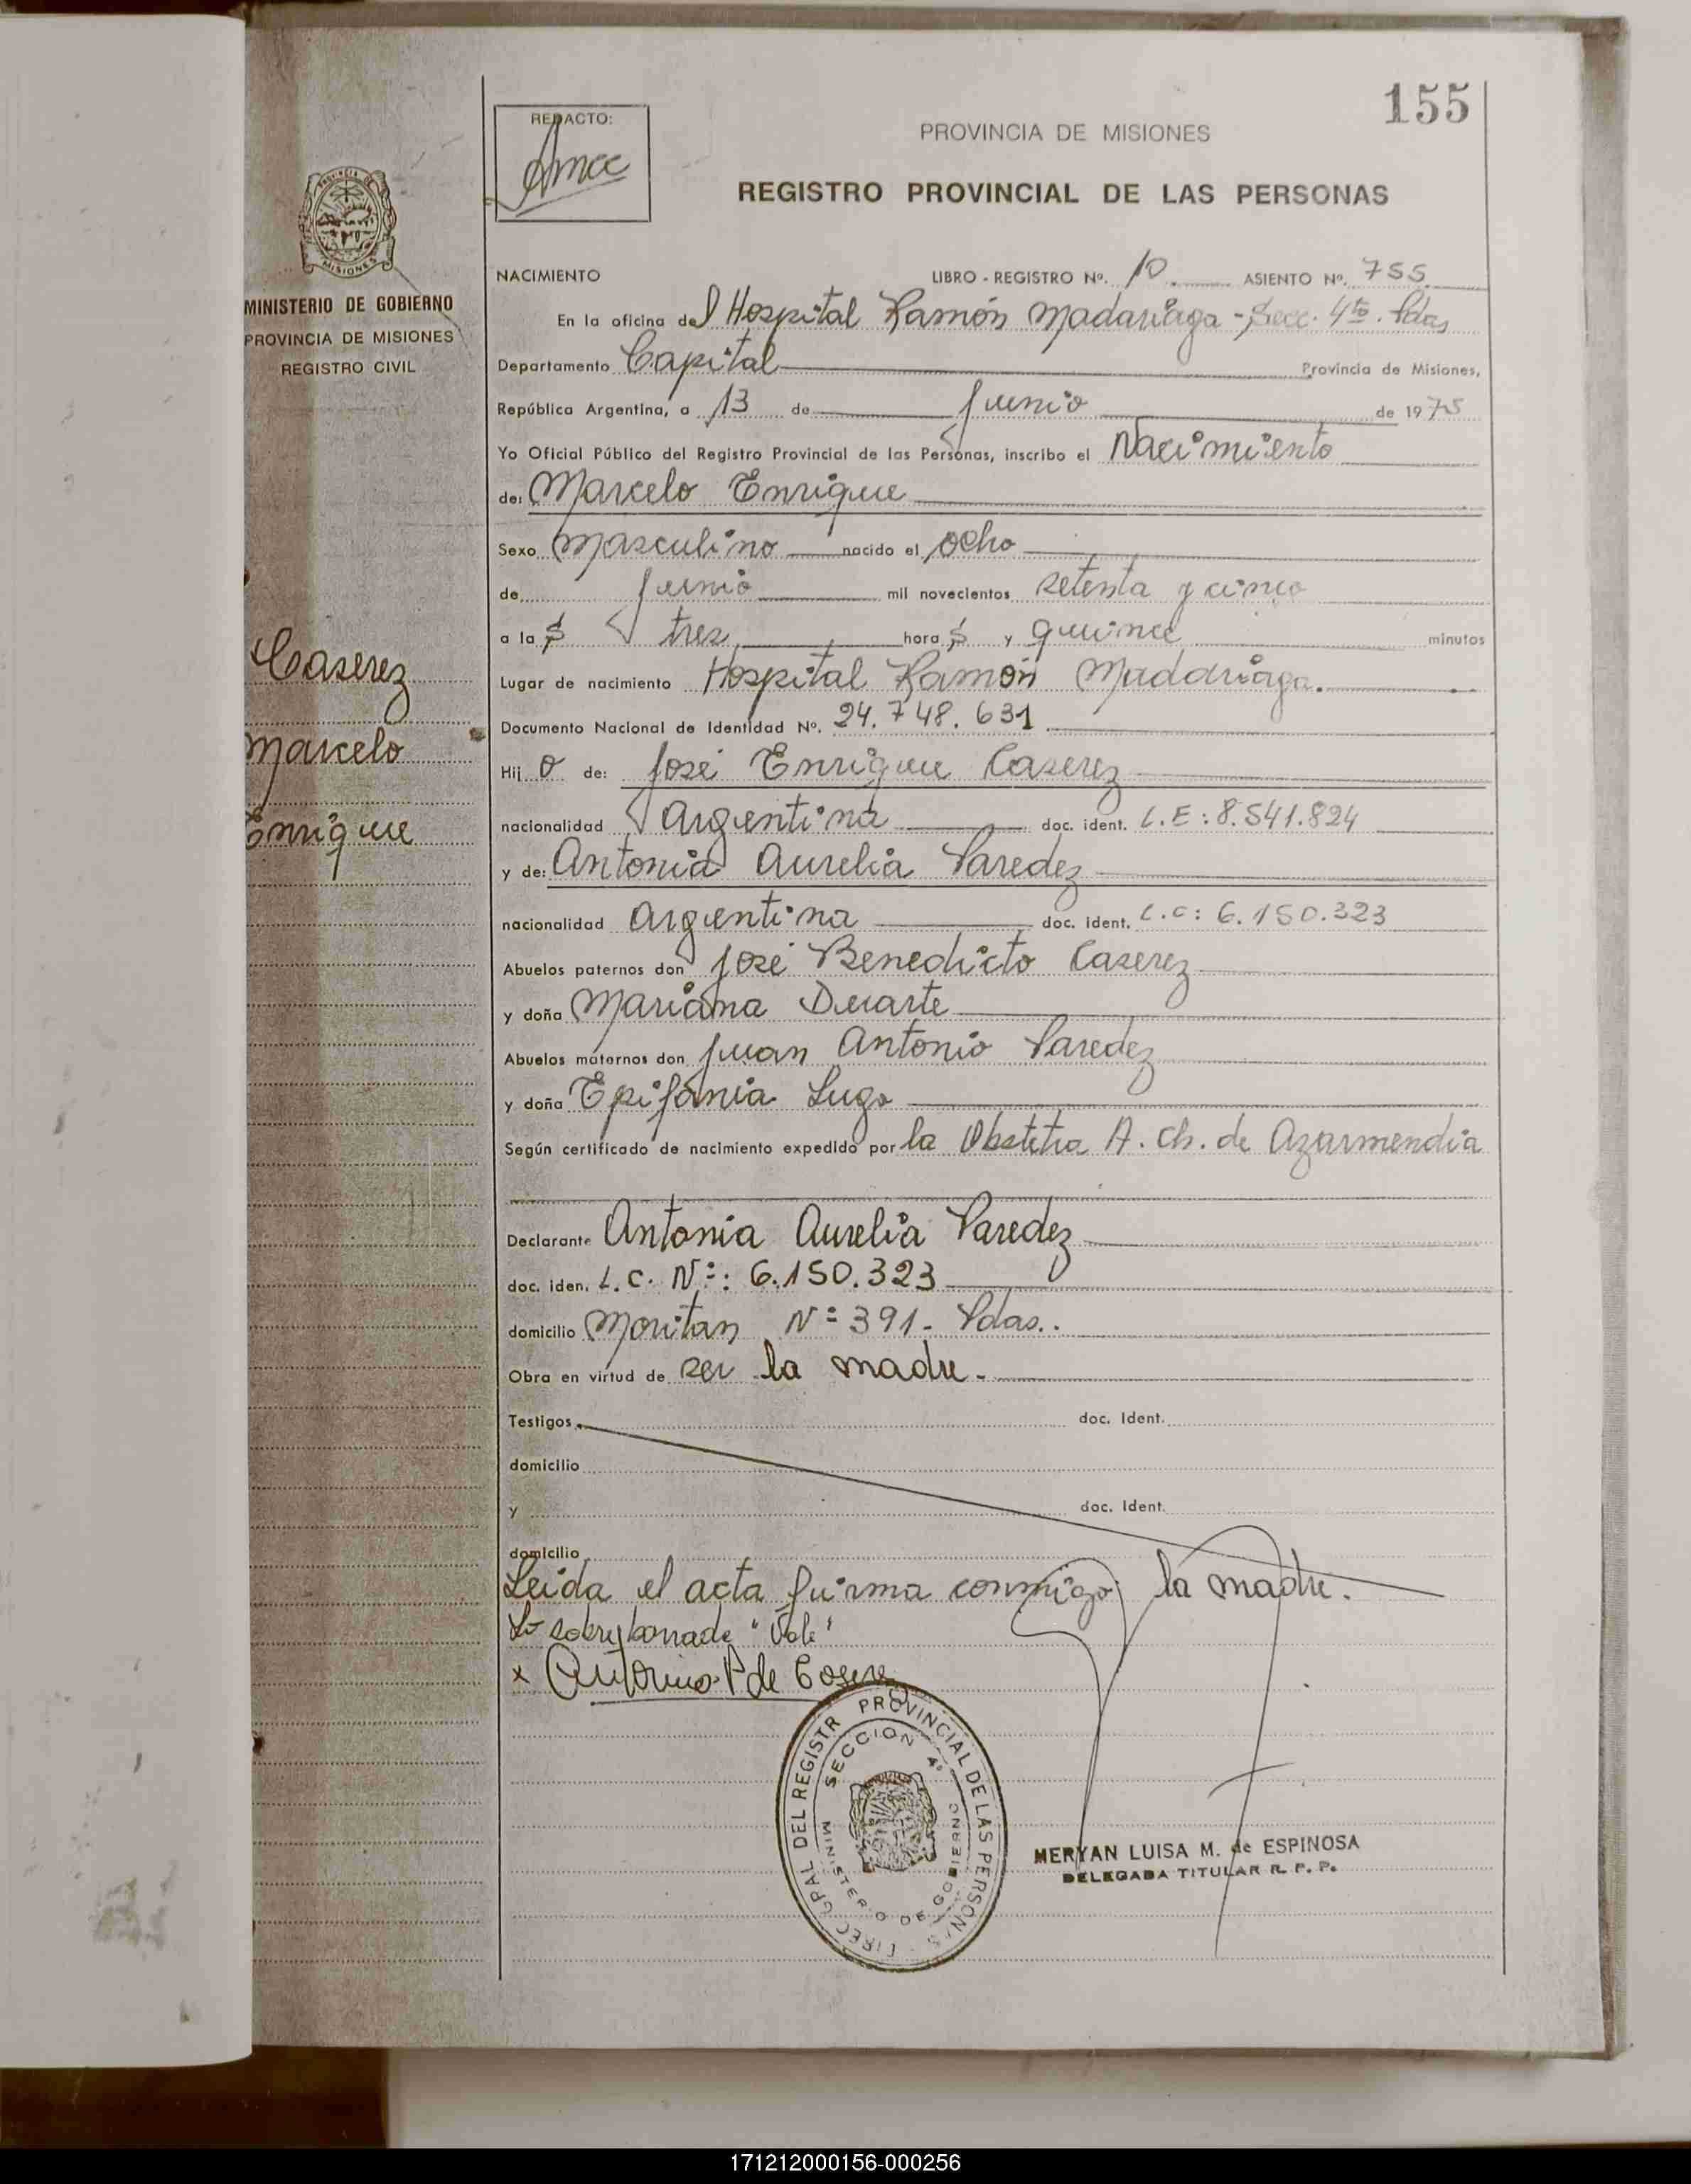 155
REDACTO:
PROVINCIA DE MISIONES
REGISTRO PROVINCIAL DE LAS PERSONAS
MISIONES
MINISTERIO DE GOBIERNO
PROVINCIA DE MISIONES
REGISTRO CIVIL
Caserez
Marcelo
Enrique
NACIMIENTO LIBRO - REGISTRO Nº. 10 ASIENTO Nº. 755
En la oficina del Hospital Ramón Madariaga - Secc. 4ta. Pdas
Departamento Capital Provincia de Misiones,
República Argentina, a 13 de Junio de 1975
Yo Oficial Público del Registro Provincial de las Personas, inscribo el Nacimiento
de: Marcelo Enrique
Sexo Masculino nacido el ocho
de Junio mil novecientos setenta y cinco
a las tres horas y quince minutos
Lugar de nacimiento Hospital Ramón Madariaga.
Documento Nacional de Identidad Nº. 24.748.631
Hijo de: José Enrique Caserez
nacionalidad Argentina doc. ident. L.E: 8.541.824
y de: Antonia Aurelia Paredez
nacionalidad Argentina doc. ident. L.C: 6.150.323
Abuelos paternos don José Benedicto Caserez
y doña Mariana Duarte
Abuelos maternos don Juan Antonio Paredez
y doña Epifania Lugo
Según certificado de nacimiento expedido por la Obstetra A. Ch. de Azarmendia
Declarante Antonia Aurelia Paredez
doc. iden. L.C. Nº: 6.150.323
domicilio Moritan Nº 391- Pdas..
Obra en virtud de ser la madre.-
Testigos doc. Ident.
domicilio
y doc. Ident.
domicilio
Leída el acta firma conmigo la madre.
Lo sobreborrado "Vale"
x Antonia P de
DIREC. GRAL DEL REGISTR PROVINCIAL DE LAS PERSONAS
SECCION 4º
MINISTERIO DE GOBIERNO
MERYAN LUISA M. de ESPINOSA
DELEGADA TITULAR R. P. P.
171212000156-000256